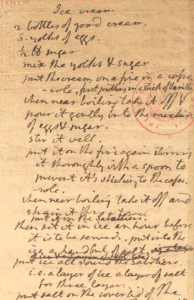 Ice cream.
2. bottles of good cream.
6. yolks of eggs.
1/2 lb sugar
mix the yolks & sugar
put the cream on a fire in a casse-
-role, first putting in a stick of Vanilla.
when near boiling take it off &
pour it gently into the mixture
of eggs & sugar.
stir it well.
put it on the fire again stirring
it thoroughly with a spoon to
prevent it's sticking to the casse-
role.
when near boiling take it off and
strain it
put it in the Sabottiere
then set it in ice an hour before
it is to be served. put into the
ice a handful of salt.
put ice all around
i.e. a layer of ice a layer of salt
for three layers.
put salt on the coverlid of the